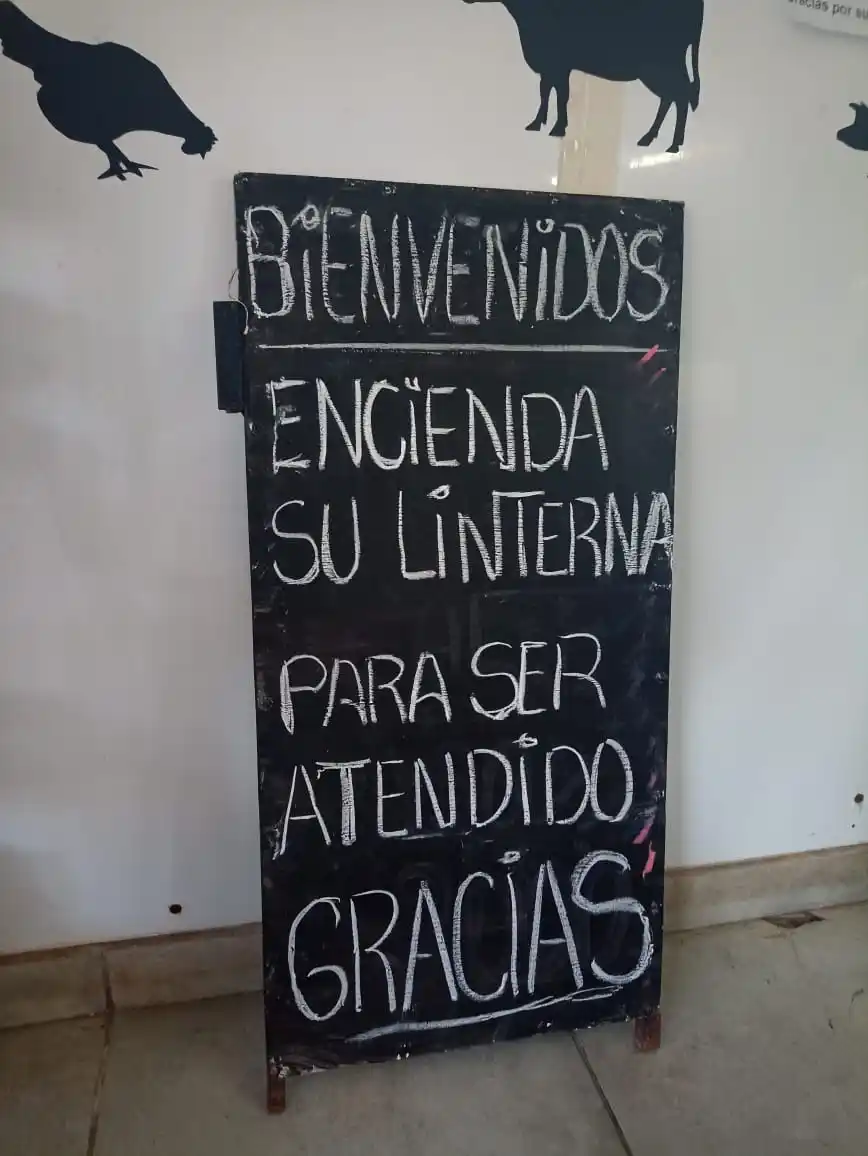 gracias por su
BiENVENiDOS
ENCiENDA
SU LiNTERNA
PARA SER
ATENDiDO
GRACiAS